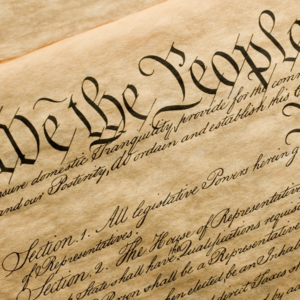 We the People
insure domestic Tranquility, provide for the com
and our Posterity, do ordain and establish this C
Section. 1. All legislative Powers herein g
of Representatives.
Section. 2. The House of Representativ
State shall have the Qualifications requis
Person shall be a Representa
when elected, be an Inhabit
direct Taxes s